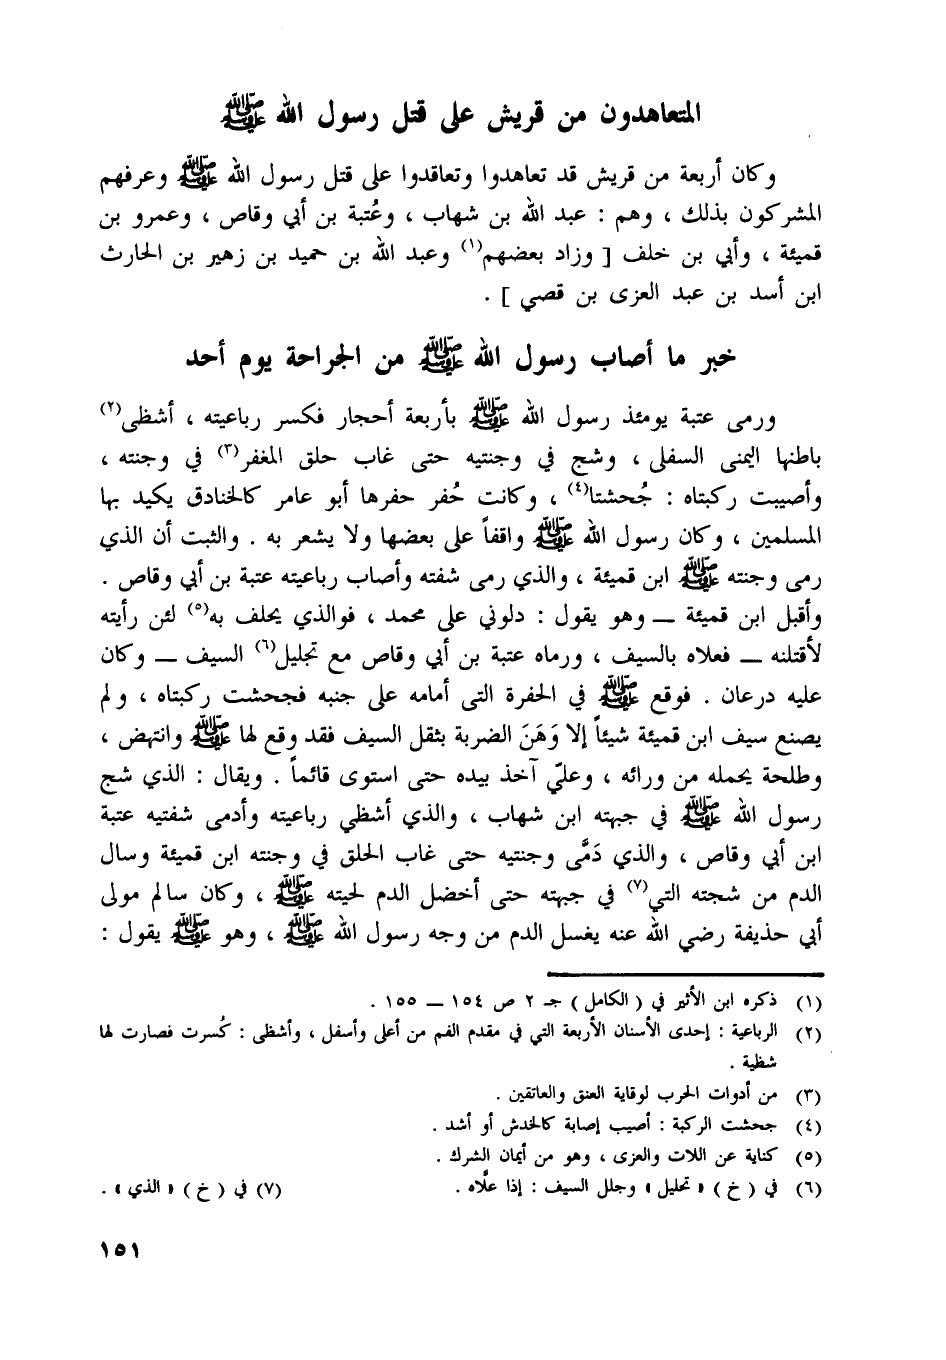 المتعاهدون من قريش على قتل رسول الله ﷺ
وكان أربعة من قريش قد تعاهدوا وتعاقدوا على قتل رسول الله ﷺ وعرفهم
المشركون بذلك ، وهم : عبد الله بن شهاب ، وعُتبة بن أبي وقاص ، وعمرو بن
قميئة ، وأبي بن خلف [ وزاد بعضهم(١) وعبد الله بن حميد بن زهير بن الحارث
ابن أسد بن عبد العزى بن قصي ] .
خبر ما أصاب رسول الله ﷺ من الجراحة يوم أحد
ورمى عتبة يومئذ رسول الله ﷺ بأربعة أحجار فكسر رباعيته ، أشظى(٢)
باطنها اليمنى السفلى ، وشج في وجنتيه حتى غاب حلق المغفر(٣) في وجنته ،
وأصيبت ركبتاه : جُحشتا(٤) ، وكانت حُفر حفرها أبو عامر كالخنادق يكيد بها
المسلمين ، وكان رسول الله ﷺ واقفاً على بعضها ولا يشعر به . والثبت أن الذي
رمى وجنته ﷺ ابن قميئة ، والذي رمى شفته وأصاب رباعيته عتبة بن أبي وقاص .
وأقبل ابن قميئة ـــ وهو يقول : دلوني على محمد ، فوالذي يحلف به(٥) لئن رأيته
لأقتلنه ـــ فعلاه بالسيف ، ورماه عتبة بن أبي وقاص مع تجليل(٦) السيف ـــ وكان
عليه درعان . فوقع ﷺ في الحفرة التى أمامه على جنبه فجحشت ركبتاه ، ولم
يصنع سيف ابن قميئة شيئاً إلا وَهَنَ الضربة بثقل السيف فقد وقع لها ﷺ وانتهض ،
وطلحة يحمله من ورائه ، وعليّ آخذ بيده حتى استوى قائماً . ويقال : الذي شج
رسول الله ﷺ في جبهته ابن شهاب ، والذي أشظى رباعيته وأدمى شفتيه عتبة
ابن أبي وقاص ، والذي دَمَّى وجنتيه حتى غاب الحلق في وجنته ابن قميئة وسال
الدم من شجته التي(٧) في جبهته حتى أخضل الدم لحيته ﷺ ، وكان سالم مولى
أبي حذيفة رضي الله عنه يغسل الدم من وجه رسول الله ﷺ ، وهو ﷺ يقول :
(١) ذكره ابن الأثير في ( الكامل ) جـ ٢ ص ١٥٤ ـــ ١٥٥ .
(٢) الرباعية : إحدى الأسنان الأربعة التي في مقدم الفم من أعلى وأسفل ، وأشظى : كُسرت فصارت لها
شظية .
(٣) من أدوات الحرب لوقاية العنق والعاتقين .
(٤) جحشت الركبة : أصيب إصابة كالخدش أو أشد .
(٥) كناية عن اللات والعزى ، وهو من أيمان الشرك .
(٦) في ( خ ) « تحليل » وجلل السيف : إذا علَّاه . (٧) في ( خ ) « الذي » .
١٥١